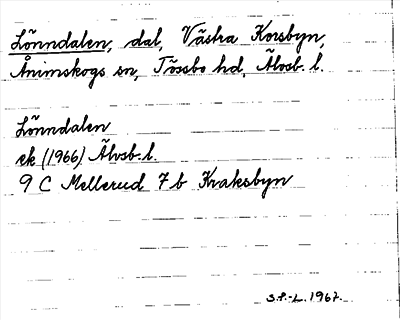 Lönndalen, dal, Västra Korsbyn,
Ånimskogs sn, Tössbo hd, Älvsb. l.
Lönndalen
ek (1966) Älvsb. l.
9 C Mellerud 7 b Kraksbyn
S.P.-L. 1967.